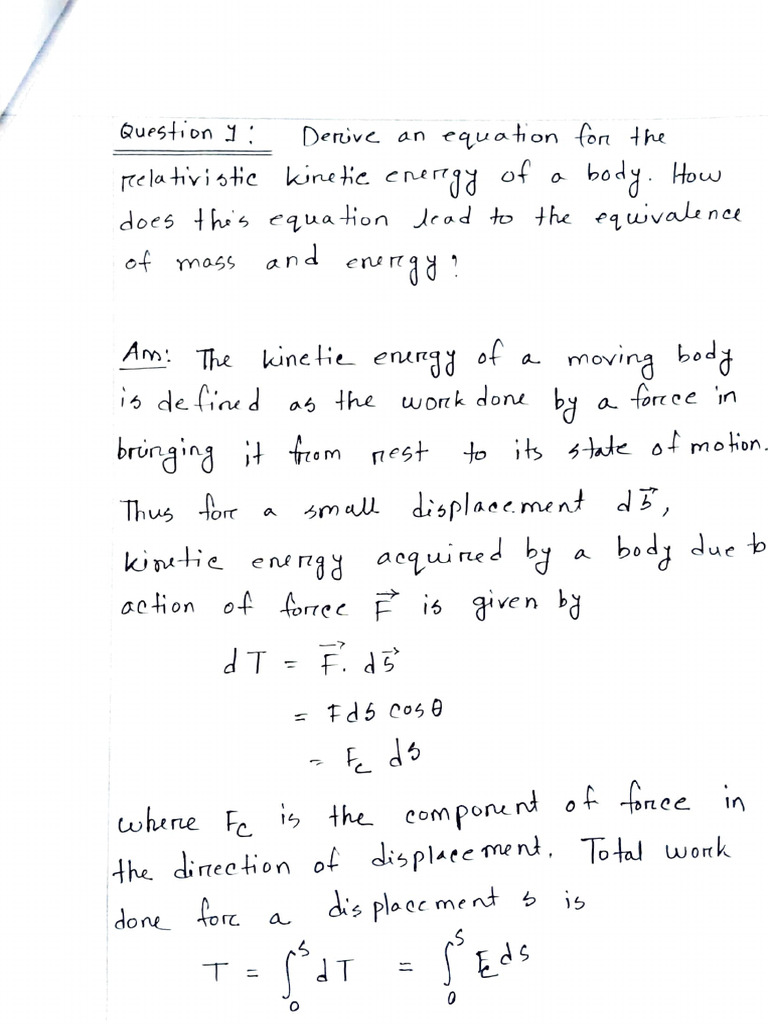 Question 1: Derive an equation for the
relativistic kinetic energy of a body. How
does this equation lead to the equivalence
of mass and energy?
Ans: The kinetic energy of a moving body
is defined as the work done by a force in
bringing it from rest to its state of motion.
Thus for a small displacement d\vec{s},
kinetic energy acquired by a body due to
action of force \vec{F} is given by
dT = \vec{F}. d\vec{s}
= Fds cosθ
= F_c ds
where F_c is the component of force in
the direction of displacement. Total work
done for a displacement s is
T = ∫₀ˢ dT = ∫₀ˢ F_c ds